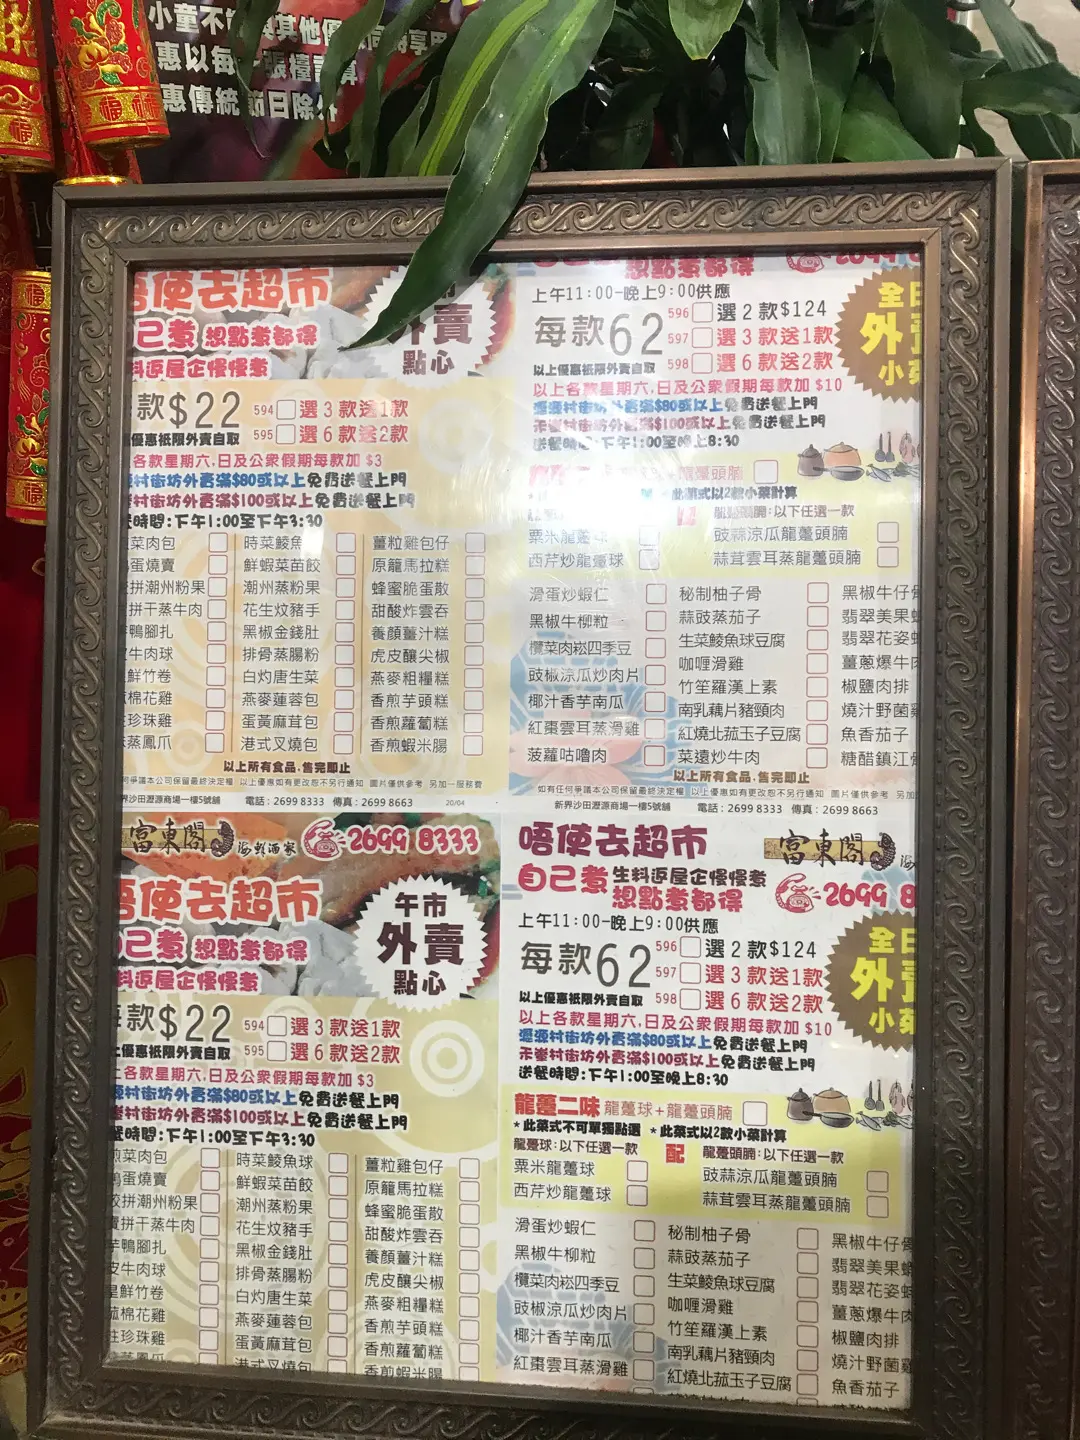 小童不
惠以每一張檯計算
惠傳統節日除外
唔使去超市
自己煮 想點煮都得
生料返屋企慢慢煮
外賣
點心
款$22
594 選3款送1款
595 選6款送2款
優惠祇限外賣自取
各款星期六,日及公衆假期每款加 $3
村街坊外賣滿$80或以上免費送餐上門
村街坊外賣滿$100或以上免費送餐上門
時間:下午1:00至下午3:30
菜肉包 時菜鯪魚 薑粒雞包仔
蛋燒賣 鮮蝦菜苗餃 原籠馬拉糕
拼潮州粉果 潮州蒸粉果 蜂蜜脆蛋散
拼干蒸牛肉 花生炆豬手 甜酸炸雲吞
鴨腳扎 黑椒金錢肚 養顏薑汁糕
牛肉球 排骨蒸腸粉 虎皮釀尖椒
鮮竹卷 白灼唐生菜 燕麥粗糧糕
棉花雞 燕麥蓮蓉包 香煎芋頭糕
珍珠雞 蛋黃麻茸包 香煎蘿蔔糕
蒸鳳爪 港式叉燒包 香煎蝦米腸
以上所有食品,售完即止
何爭議本公司保留最終決定權 以上優惠如有更改恕不另行通知 圖片僅供參考 另加一服務費
界沙田瀝源商場一樓5號舖 電話:2699 8333 傳真:2699 8663 20/04
想點煮都得 2699 8
上午11:00-晚上9:00供應
每款62
596 選2款$124
597 選3款送1款
598 選6款送2款
全日
外賣
小菜
以上優惠祇限外賣自取
以上各款星期六,日及公衆假期每款加 $10
瀝源村街坊外賣滿$80或以上免費送餐上門
禾輋村街坊外賣滿$100或以上免費送餐上門
送餐時間:下午1:00至晚上8:30
龍躉頭腩
*此菜式以2款小菜計算
龍躉頭腩:以下任選一款
粟米龍躉球 豉蒜涼瓜龍躉頭腩
西芹炒龍躉球 蒜茸雲耳蒸龍躉頭腩
滑蛋炒蝦仁 秘制柚子骨 黑椒牛仔骨
黑椒牛柳粒 蒜豉蒸茄子 翡翠美果
欖菜肉崧四季豆 生菜鯪魚球豆腐 翡翠花姿
豉椒涼瓜炒肉片 咖喱滑雞 薑蔥爆牛肉
椰汁香芋南瓜 竹笙羅漢上素 椒鹽肉排
紅棗雲耳蒸滑雞 南乳藕片豬頸肉 燒汁野菌
菠蘿咕嚕肉 紅燒北菇玉子豆腐 魚香茄子
菜遠炒牛肉 糖醋鎮江骨
以上所有食品,售完即止
如有任何爭議本公司保留最終決定權 以上優惠如有更改恕不另行通知 圖片僅供參考 另加
新界沙田瀝源商場一樓5號舖 電話:2699 8333 傳真:2699 8663
富東閣 海鮮酒家 2699 8333
唔使去超市
自己煮 想點煮都得
生料返屋企慢慢煮
午市
外賣
點心
每款$22
594 選3款送1款
595 選6款送2款
以上優惠祇限外賣自取
上各款星期六,日及公衆假期每款加 $3
源村街坊外賣滿$80或以上免費送餐上門
輋村街坊外賣滿$100或以上免費送餐上門
餐時間:下午1:00至下午3:30
煎菜肉包 時菜鯪魚球 薑粒雞包仔
蛋燒賣 鮮蝦菜苗餃 原籠馬拉糕
餃拼潮州粉果 潮州蒸粉果 蜂蜜脆蛋散
賣拼干蒸牛肉 花生炆豬手 甜酸炸雲吞
芋鴨腳扎 黑椒金錢肚 養顏薑汁糕
皮牛肉球 排骨蒸腸粉 虎皮釀尖椒
鮮竹卷 白灼唐生菜 燕麥粗糧糕
菰棉花雞 燕麥蓮蓉包 香煎芋頭糕
珍珠雞 蛋黃麻茸包 香煎蘿蔔糕
蒸鳳爪 港式叉燒包 香煎蝦米腸
唔使去超市 富東閣
自己煮 生料返屋企慢慢煮
想點煮都得 2699 8
上午11:00-晚上9:00供應
每款62
596 選2款$124
597 選3款送1款
598 選6款送2款
全日
外賣
小菜
以上優惠祇限外賣自取
以上各款星期六,日及公衆假期每款加 $10
瀝源村街坊外賣滿$80或以上免費送餐上門
禾輋村街坊外賣滿$100或以上免費送餐上門
送餐時間:下午1:00至晚上8:30
龍躉二味 龍躉球+龍躉頭腩
*此菜式不可單獨點選 *此菜式以2款小菜計算
龍躉球:以下任選一款 配 龍躉頭腩:以下任選一款
粟米龍躉球 豉蒜涼瓜龍躉頭腩
西芹炒龍躉球 蒜茸雲耳蒸龍躉頭腩
滑蛋炒蝦仁 秘制柚子骨 黑椒牛仔骨
黑椒牛柳粒 蒜豉蒸茄子 翡翠美果
欖菜肉崧四季豆 生菜鯪魚球豆腐 翡翠花姿
豉椒涼瓜炒肉片 咖喱滑雞 薑蔥爆牛肉
椰汁香芋南瓜 竹笙羅漢上素 椒鹽肉排
紅棗雲耳蒸滑雞 南乳藕片豬頸肉 燒汁野菌雞
紅燒北菰玉子豆腐 魚香茄子